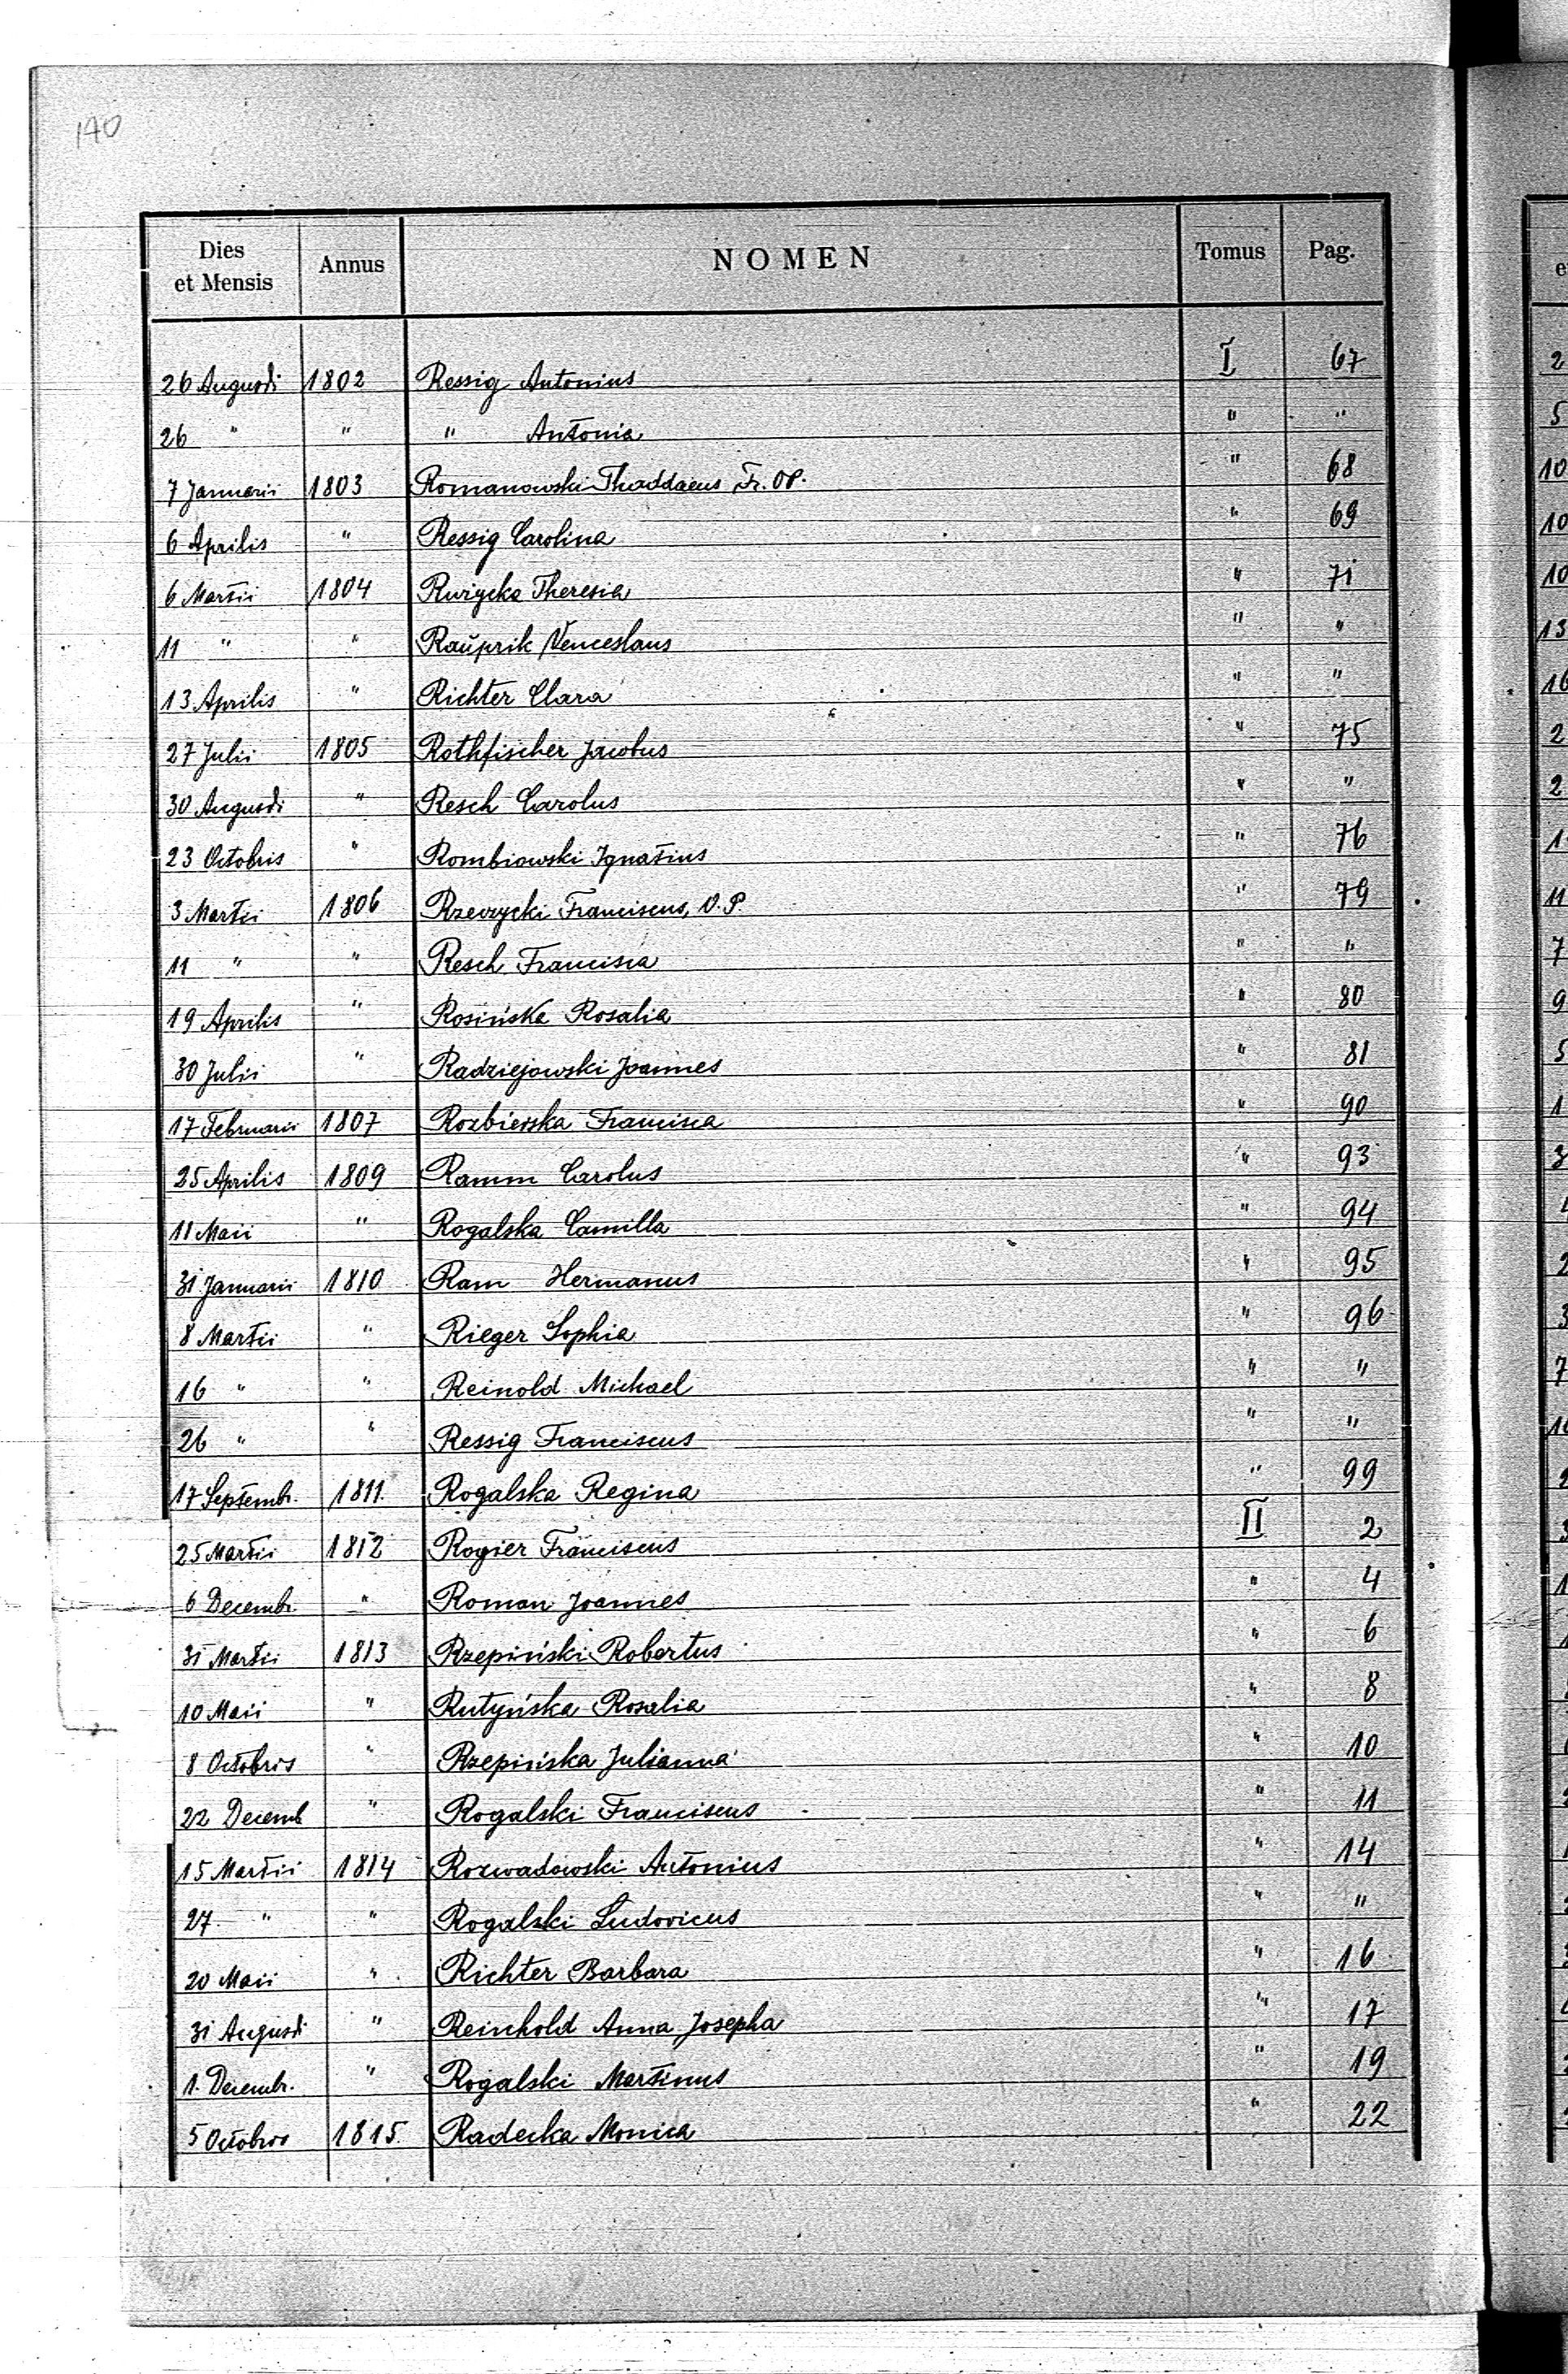 140
Dies et Mensis Annus NOMEN Tomus Pag.
26 Augusti 1802 Ressig Antonius I 67
26 " " " Antonia " "
7 Januarii 1803 Romanowski Thaddaeus Fr. OP. " 68
6 Aprilis " Ressig Carolina " 69
6 Martii 1804 Ruzycka Theresia " 71
11 " " Venceslaus " "
13 Aprilis " Richter Clara " "
27 Julii 1805 Rothfischer Jacobus " 75
30 Augusti " Resch Carolus " "
23 Octobris " Rombiowski Ignatius " 76
3 Martii 1806 Franciscus, " 79
11 " " Resch Francisca " "
19 Aprilis " Rosińska Rosalia " 80
30 Julii " Radziejowski Joannes " 81
17 Februarii 1807 Rozbierska Francisca " 90
25 Aprilis 1809 Ramm Carolus " 93
11 Maii " Rogalska Camilla " 94
31 Januarii 1810 Ram Hermanus " 95
8 Martii " Rieger Sophia " 96
16 " " Reinold Michael " "
26 " " Ressig Franciscus " "
17 Septembr. 1811. Rogalska Regina " 99
25 Martii 1812 Rogier Franciscus II 2
6 Decembr. " Roman Joannes " 4
31 Martii 1813 Rzepiński Robertus " 6
10 Maii " Rutyńska Rosalia " 8
8 Octobris " Rzepińska Julianna " 10
22 Decemb " Rogalski Franciscus " 11
15 Martii 1814 Rozwadowski Antonius " 14
27 " " Rogalski Ludovicus " "
20 Maii " Richter Barbara " 16
31 Augusti " Reinhold Anna Josepha " 17
1. Decembr. " Rogalski Martinus " 19
5 Octobris 1815. Radecka Monica " 22